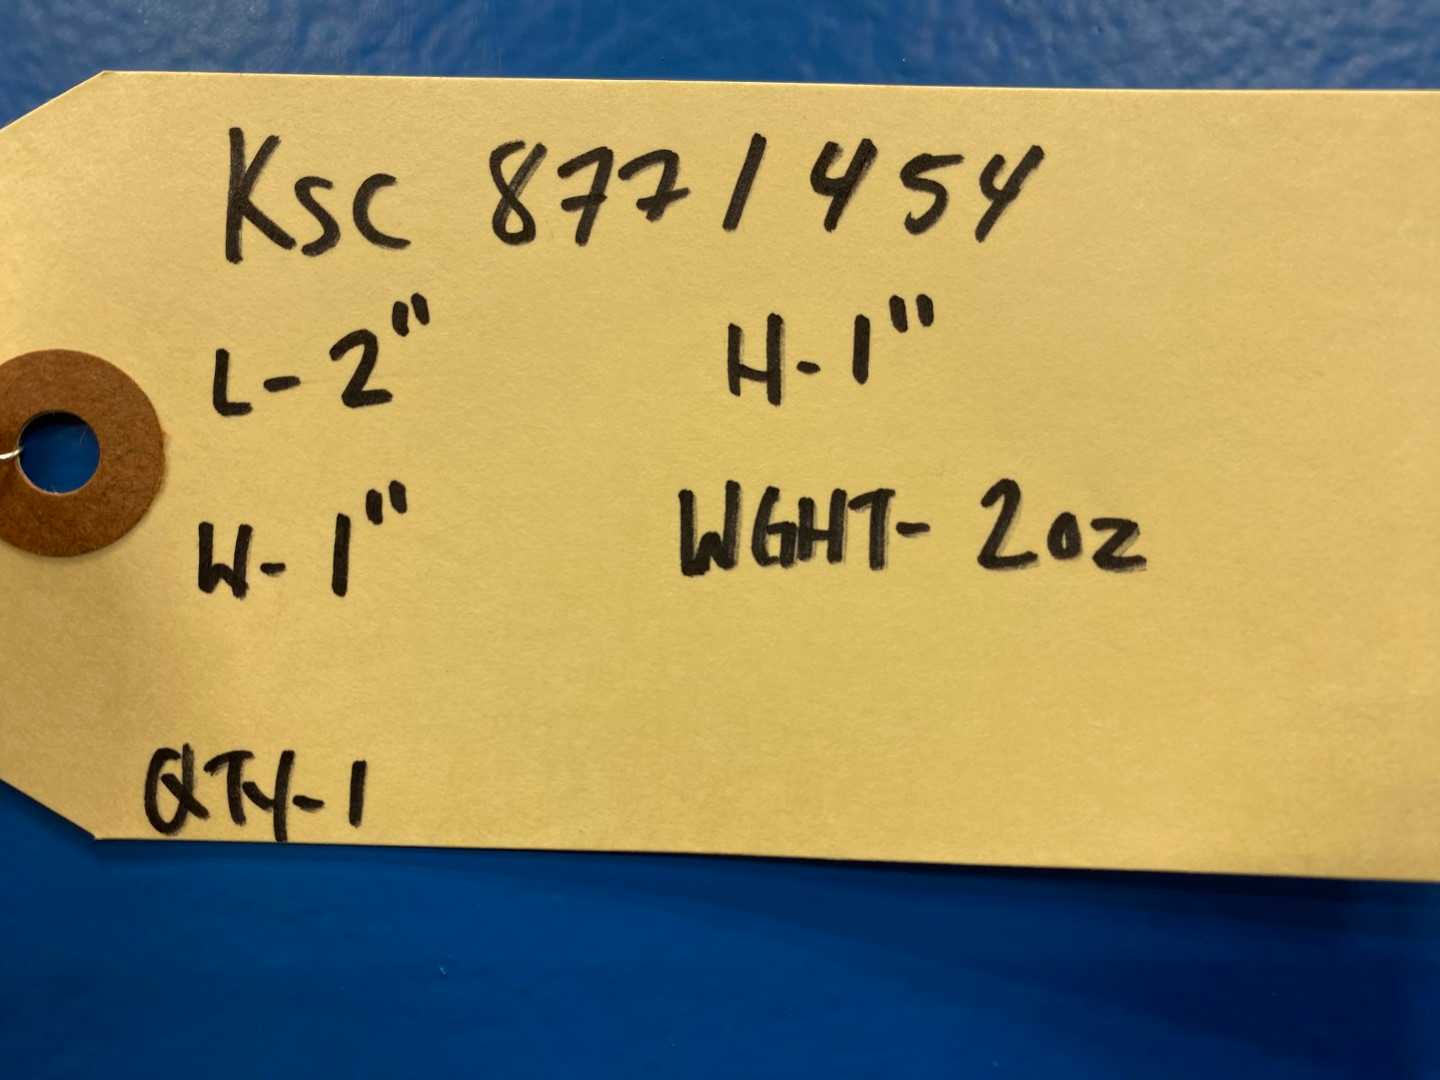 KSC 877/454
L-2" H-1"
W-1" WGHT-2oz
QTY-1